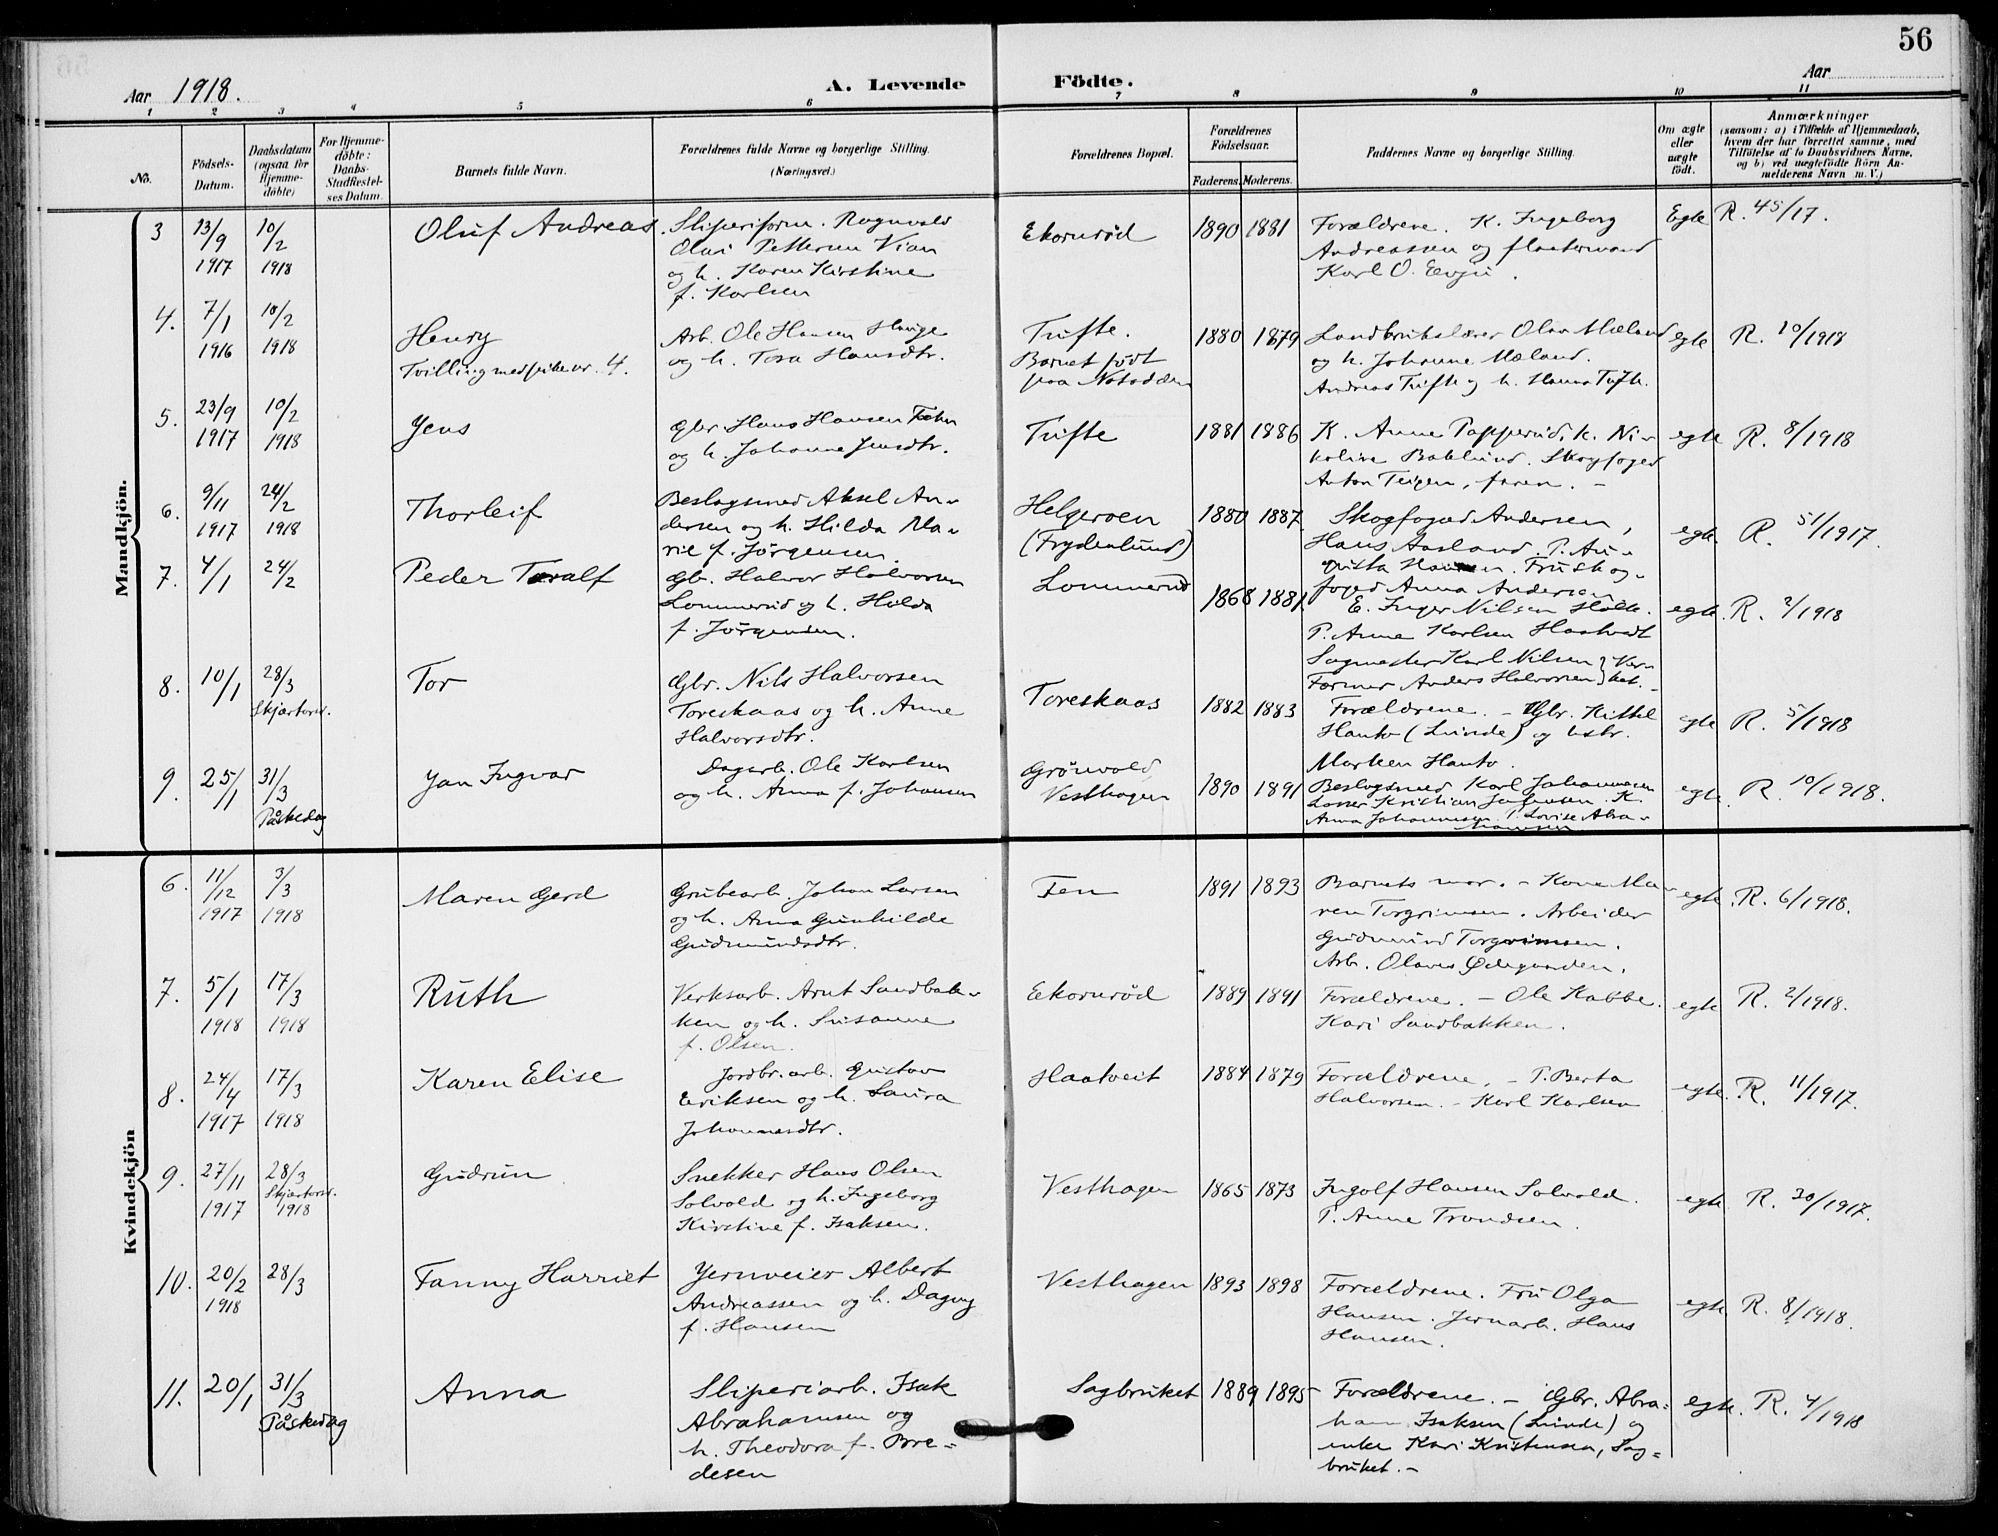 56
Aar 1918.
A. Levende Födte.
Aar
1 2 3 4 5 6 7 8 9 10 11
No.
Födsels-
Datum.
Daabsdatum
(ogsaa for
Hjemme-
döbte)
For Hjemme-
döbte:
Daabs-
Stadfæstel-
ses Datum.
Barnets fulde Navn.
Forældrenes fulde Navne og borgerlige Stilling.
(Næringsvei.)
Forældrenes Bopæl.
Forældrenes
Födselsaar.
Faderens. Moderens.
Faddernes Navne og borgerlige Stilling.
Om ægte
eller
uægte
födt.
Anmærkninger
(saasom: a) i Tilfælde af Hjemmedaab,
hvem der har forrettet samme, med
Tilföielse af to Daabsvidners Navne,
og b) ved uægtefödte Börn An-
melderens Navn m. V.)
Mandkjön.
3
13/9
1917
10/2
1918
Oluf Andreas
Sliperiform. Ragnvald
Olai Pettersen Vian
og h. Karen Kirstine
f. Karlsen
Ekornröd
1890 1881
Forældrene. K. Ingeborg
Andreassen og fløtermand
Karl O. Evju.
Egte
R. 45/17.
4.
7/1
1916
10/2
1918
Henry
Tvilling med pike nr. 4.
Arb. Ole Hansen Hauge
og h. Tora Hansdtr.
Tufte.
Barnet födt
paa Notodden
1880 1879
Landbrukslærer Olav Mæland
og h. Johanne Mæland.
Andreas Tufte og h. Hanna Tufte.
egte
R. 20/1918
5.
23/9
1917
10/2
1918
Jens
Gbr. Hans Hansen
og h. Johanne Jensdtr.
Tufte
1881 1886
K. Anne Papperud, k. Ni-
koline Baklund. Skogfoged
Anton Teigen, faren. -
egte
R. 8/1918
6.
9/11
1917
24/2
1918
Thorleif
Beslagsmed Aksel An-
dersen og h. Hilda Ma-
rie f. Jörgensen.
Helgeroen
(Frydenlund)
1880 1887
Skogfoged Andersen,
Hans Aasland. P. Au-
gusta Hansen. Fru Skog-
foged Anna Andersen
egte
R. 51/1917.
7.
4/1
24/2
Peder Toralf
Gb. Halvor Halvorsen
Lommerud og h. Hilda
f. Jörgensen.
Lommerud
1868 1881
E. Inger Nilsen Holte.
P. Anne Karlsen Haatvedt
Sagmester Karl Nilsen
Former Anders Halvorsen
egte.
R. 2/1918
8.
10/1
28/3
Skjærtorsd.
Tor
Gbr. Nils Halvorsen
Toreskaas og h. Anne
Halvorsdtr.
Toreskaas
1882 1883
Forældrene. - Gbr. Kittel
Hanto (Lunde) og hstr.
Marken Hanto.
egte
R. 5/1918
9.
25/1
31/3
Påskedag
Jan Ingvar
Dagarb. Ole Karlsen
og h. Anna f. Johansen
Grönvold,
Vesthagen
1890 1891
Beslagsmed Karl Johannesen
Kristian Johansen. K.
Anna Johannesen. P. Lovise Abra-
hamsen
egte.
R. 10/1918.
Kvindekjön
6.
11/12
1917
3/3
1918
Maren Gerd
Grubearb. Johan Larsen
og h. Anna Gunhilde
Gudmundsdtr.
Fen
1891 1893
Barnets mor. - Kone Ma-
ren Torgrimsen. Arbeider
Gudmund Torgrimsen.
Arb. Olaves Ødegaarden.
egte.
R. 6/1918.
7.
5/1
1918
17/3
1918
Ruth
Verksarb. Arnt Sandbak-
ken og h. Susanne
f. Olsen.
Ekornröd
1889 1891
Forældrene. - Ole Kabbe.
Kari Sandbakken.
egte
R. 2/1918.
8.
24/4
1917
17/3
1918
Karen Elise
Jordbr.arb. Gustav
Eriksen og h. Laura
Johannesdtr.
Haatveit
1884 1879
Forældrene. - P. Berta
Halvorsen. - Karl Karlsen
egte.
R. 11/1917.
9.
27/11
1917
28/3
Skjærtorsd.
1918
Gudrun
Snekker Hans Olsen
Solvold og h. Ingeborg
Kirstine f. Isaksen.
Vesthagen
1865 1873
Ingolf Hansen Solvold.
P. Anne Trondsen.
egte
R. 30/1917.
10.
20/2
1918
28/3
Fanny Harriet
Jernveier Albert
Andreassen og h. Dagny
f. Hansen
Vesthagen
1893 1898
Forældrene. Fru Olga
Hansen. Jernarb. Hans
Hansen.
egte
R. 8/1918.
11.
20/1
31/3
Påskedag
Anna
Sliperiarb. Isak
Abrahamsen og
h. Theodora f. Bre-
desen
Sagbruket
1889 1895
Forældrene. - Gbr. Abra-
ham Isaksen (Lunde) og
enke Kari Kristensen, Sag-
bruket. -
egte.
R. 4/1918